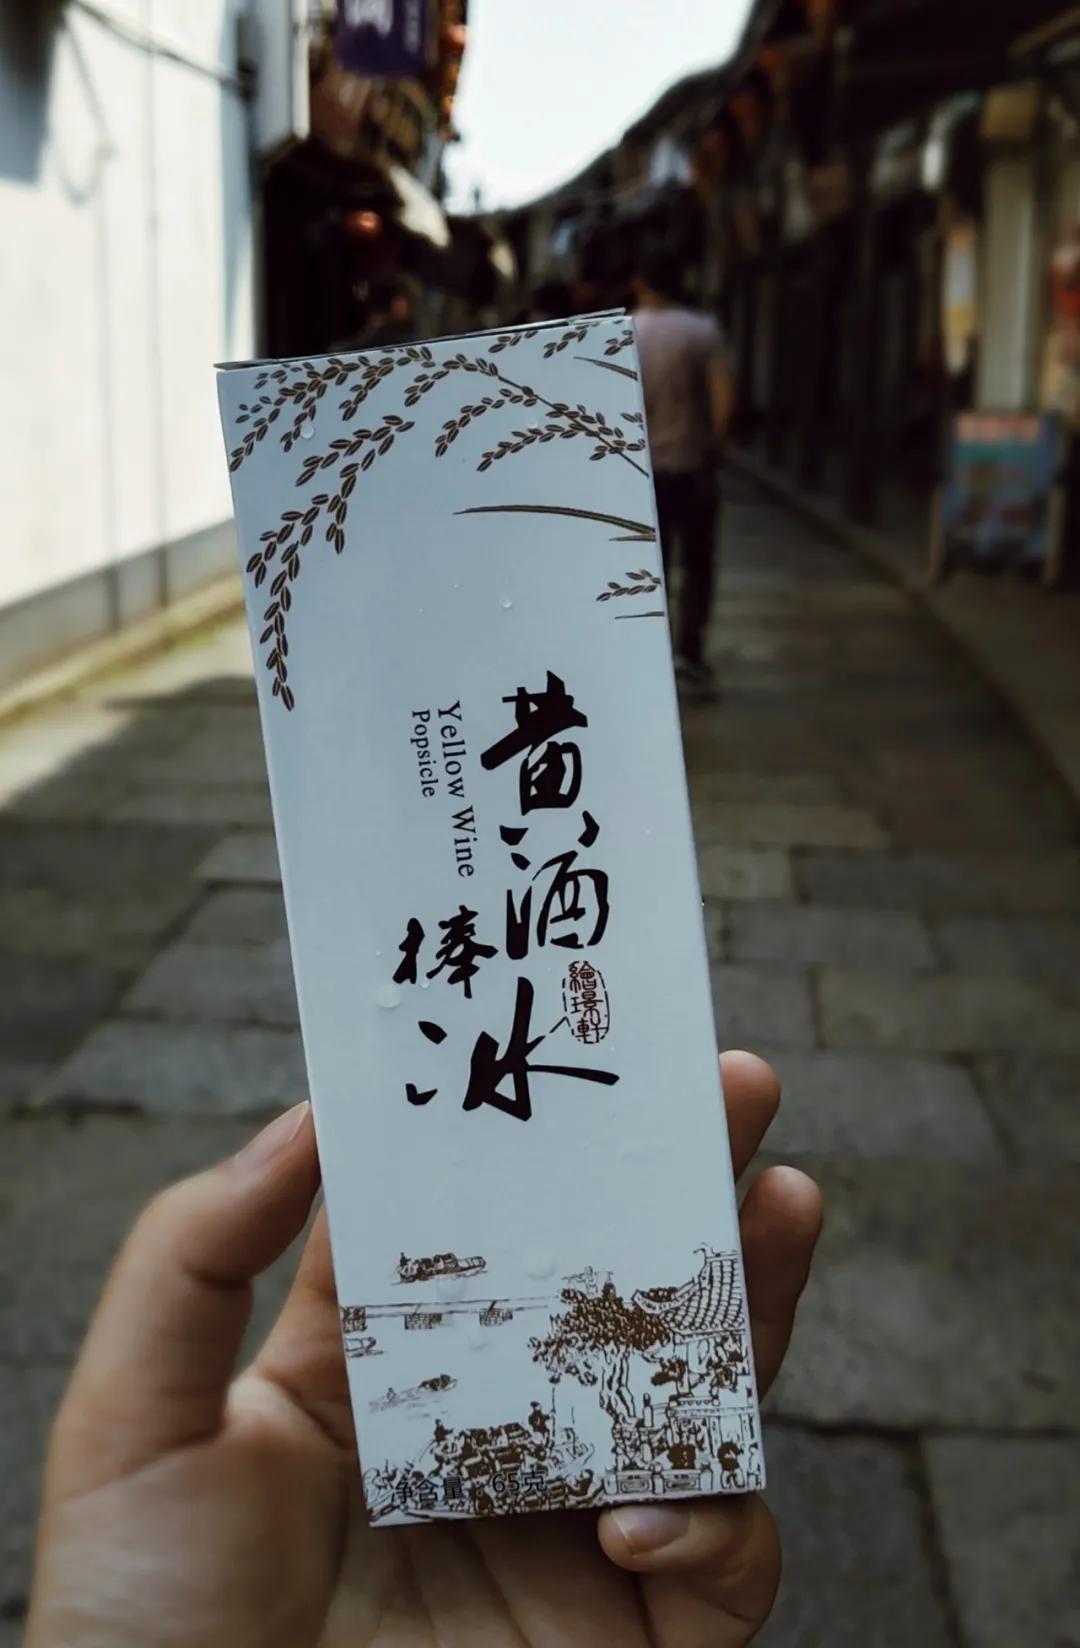 黄酒
棒冰
Yellow Wine
Popsicle
繪璟軒
净含量：65克